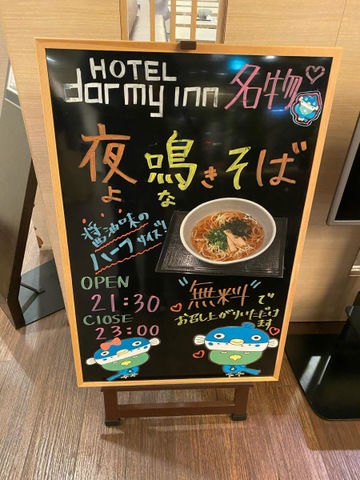 HOTEL
dormy inn 名物
夜鳴きそば
よ な
醤油味の
ハーフサイズ!
OPEN
21:30
ClOSE
23:00
"無料"で
お召し上がりいただけ
ます